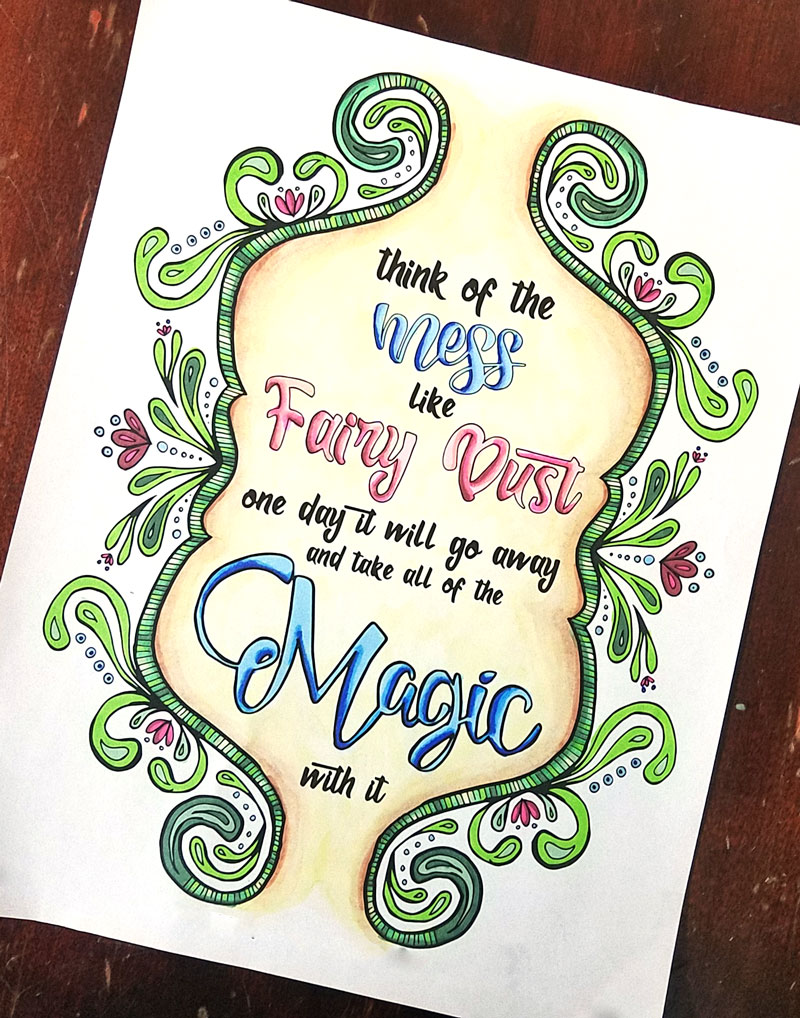 think of the
mess
like
Fairy Dust
one day it will go away
and take all of the
Magic
with it